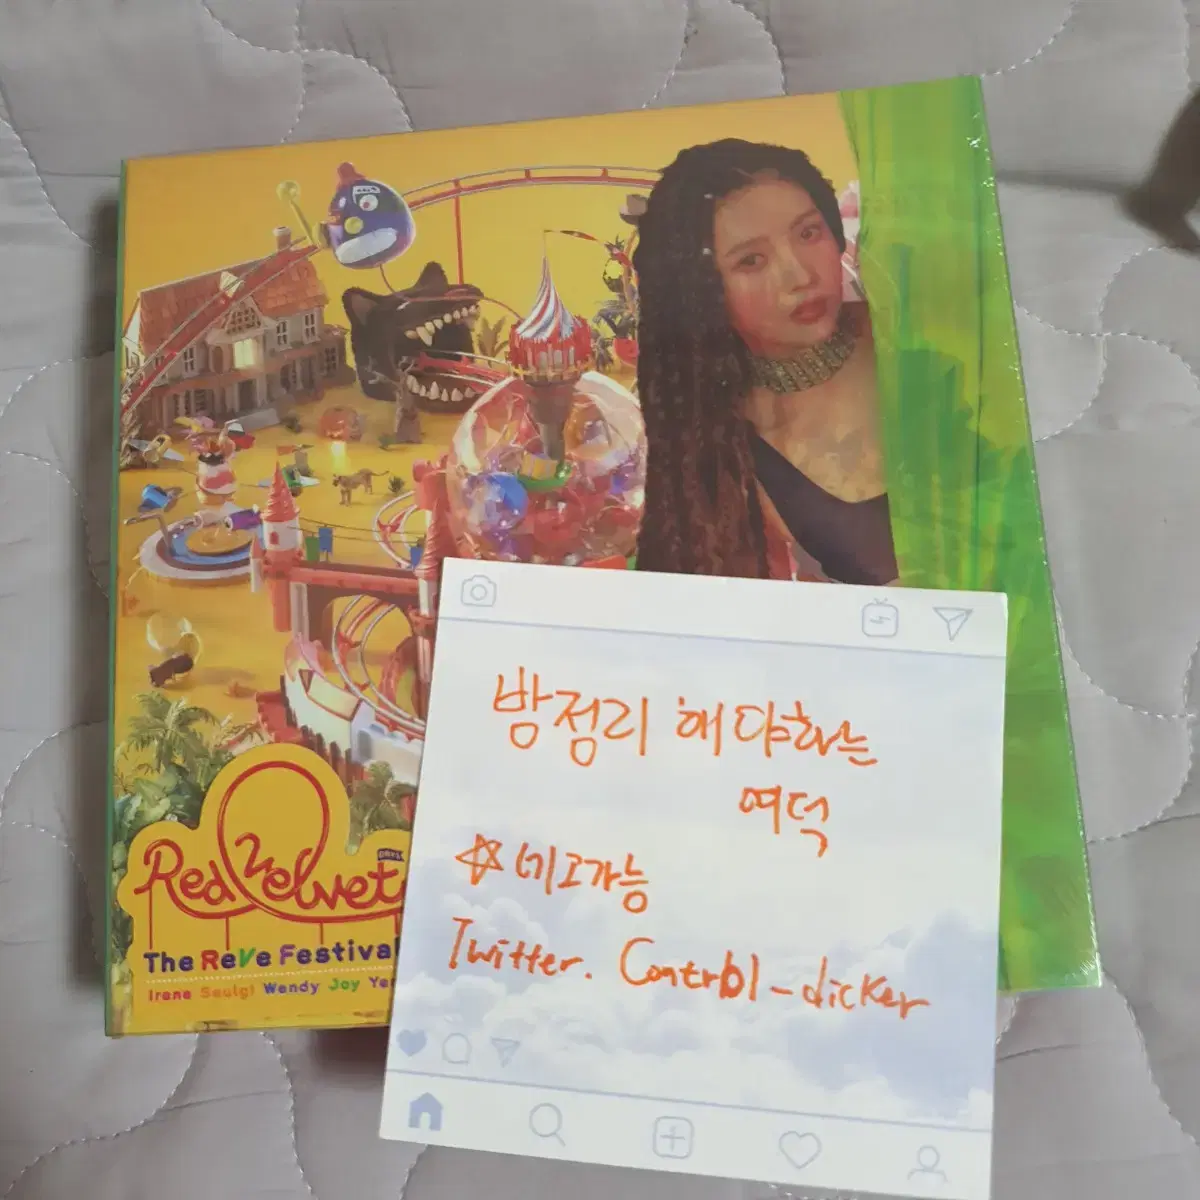 Red Velvet
The ReVe Festival
Irene Seulgi Wendy Joy Yer
방정리 해야하는
여덕
☆네고가능
Twitter. Contrbl_dicker